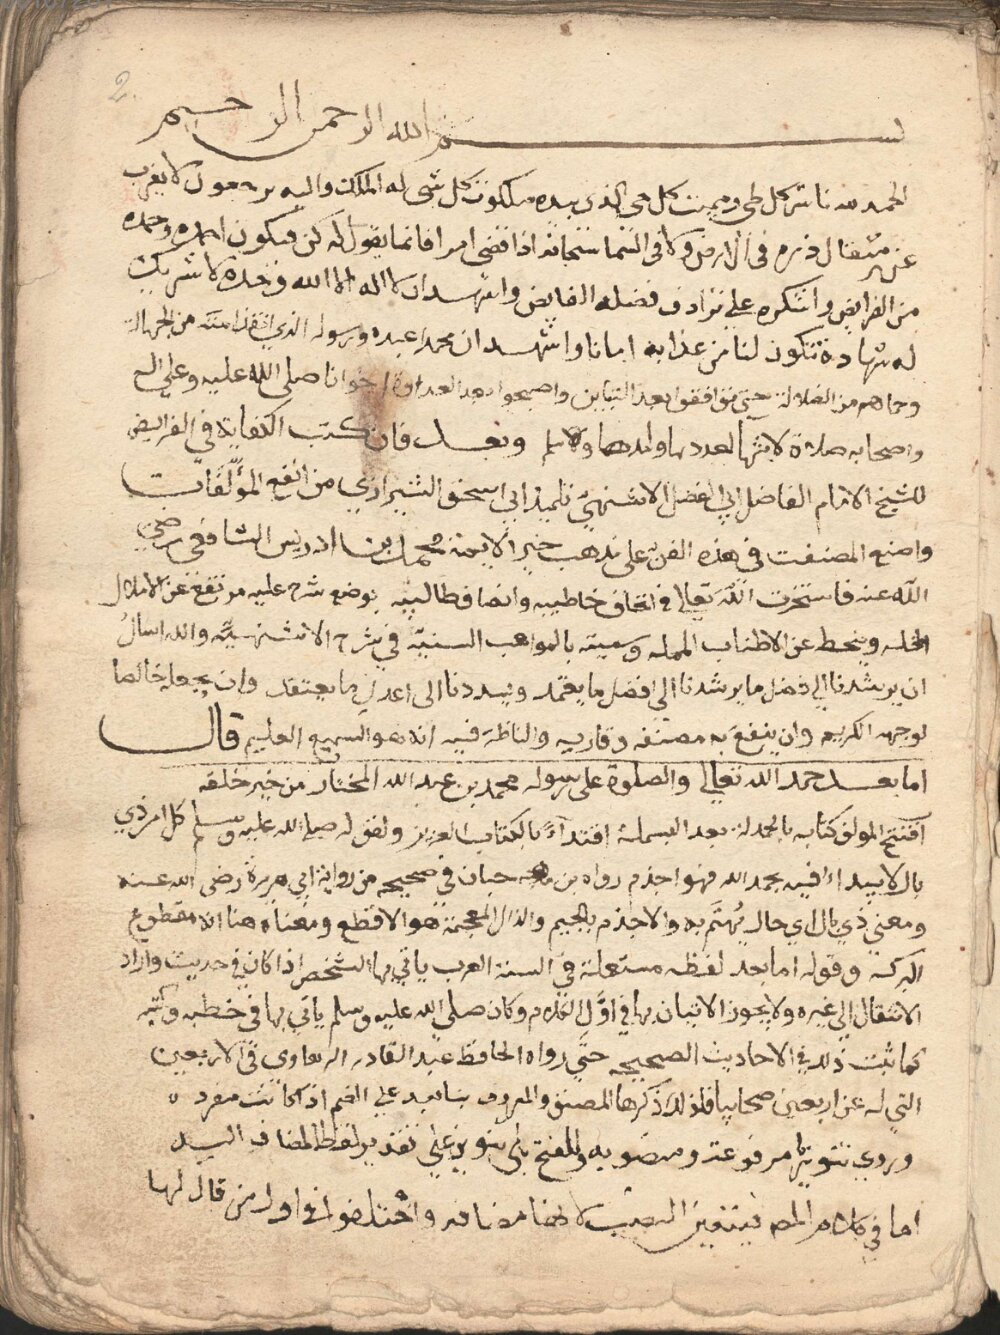 2
بسم الله الرحمن الرحيم
الحمد لله ناشر كل طي ومميت كل حي الذي بيده ملكوت كل شي له الملك واليه ترجعون لا يعزب
عنه مثقال ذره في الارض ولا في السما سبحانه اذا قضى امرا فانما يقول له كن فيكون احمده وحمده
من الفرايض واشكره على ترادف فضله الفايض واشهد ان لا اله الا الله وحده لا شريك
له شهادة تكون لنا من عذابه امانا واشهد ان محمدا عبده ورسوله الذي انقذ امته من الجهالة
وحماهم من الضلالة حتى توافقوا بعد التباين واصبحوا بعد العداوة اخوانا صلى الله عليه وعلى اله
واصحابه صلاة لا انتها لعددها وامدها وبعد فان كتاب الكفاية في الفرايض
للشيخ الامام الفاضل ابي الفضل الاشنهي تلميذ ابي اسحق الشيرازي من انفع المؤلفات
واصنع المصنفت في هذه الفن على مذهب خير الايمة محمد بن ادريس الشافعي رضي
الله عنه فاستخرت الله تعالى في اتحاف خاطبيه وانصاف طالبيه بوضع شرح عليه مرتفع عن الاملال
وينحط عن الاطناب الممله وسميته بالمواهب السنية في شرح الاشنهية والله اسال
ان يرشدنا الى افضل ما يعتمد ويسددنا الى اعدل ما يعتقد وان يجعله خالصا
لوجهه الكريم وان ينفع به مصنفه وقاريه والناظر فيه انه هو السميع العليم قال
اما بعد حمد الله تعالى والصلوة على رسوله محمد بن عبد الله المختار من خير خلقه
افتتح المولف كتابه بالحمدلة بعد البسملة اقتداء بالكتاب العزيز ولقوله صلى الله عليه وسلم كل امر ذي
بال لا يبدا فيه بحمد الله فهو اجذم رواه بن حبان في صحيحه من رواية ابي هريرة رضي الله عنه
ومعنى ذي بال اي حال يهتم به والاجذم بالجيم والذال المعجمة هو الاقطع ومعناه هنا انه مقطوع
البركه وقوله اما بعد لفظه مستعملة في السنة العرب ياتي بها الشخص اذا كان في حديث واراد
الانتقال الى غيره ولا يجوز الاتيان بها في اول الكلام وكان صلى الله عليه وسلم ياتي بها في خطبه وكتبه
كما ثبت ذلك في الاحاديث الصحيحه حتى رواه الحافظ عبد القادر الرهاوي في الاربعين
التي له عن اربعين صحابيا فلذلك ذكرها المصنف والمعروف بنا بعد على الضم اذ كانت مفردة
وروي تنوينها مرفوعة ومنصوبه والفتح بلا تنوين على تقدير لفظ المضاف اليه
اما في كلام المص فيتعين النصب لانها مضافه واختلفوا في اول من قال لها